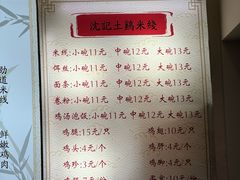 沈記土鷄米线
米线:小碗11元 中碗12元 大碗13元
饵丝:小碗11元 中碗12元 大碗13元
面条:小碗11元 中碗12元 大碗13元
卷粉:小碗11元 中碗12元 大碗13元
鸡汤泡饭:小碗11元 中碗12元 大碗13元
鸡腿:15元/只 鸡翅:10元/只
鸡头:4元/只 鸡肝:4元/只
鸡珍:3元/只 鸡脚:4元/只
劲道米线
鲜嫩鸡肉